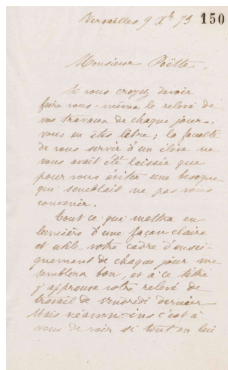 Versailles 9 Xb 73 150
Monsieur Poëtte,
Si vous croyez devoir
faire vous-même le relevé de
vos travaux de chaque jour,
vous en êtes libre; la faculté
de vous servir d'un élève ne
vous avait été laissée que
pour vous éviter une besogne
qui semblait ne pas vous
convenir.
Tout ce que mettra en
lumière d'une façon claire
et utile votre cadre d'ensei-
gnement de chaque jour me
semblera bon, et à ce titre
j'approuve votre relevé de
travail de vendredi dernier
Mais néanmoins c'est à
vous de voir si tout en lui